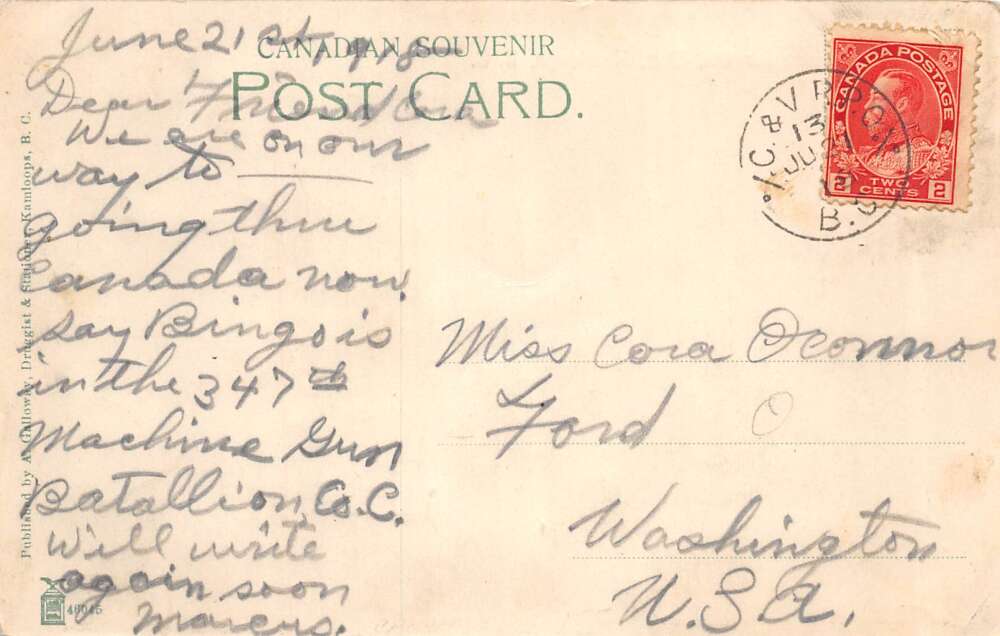 June 21st 1918
CANADIAN SOUVENIR
POST CARD.
Dear Friend Cora
We are on our
way to ____
going thru
Canada now.
Say Bingo is
in the 347th
Machine Gun
Batallion Co. C.
Will write
again soon
Marcus.
Published by A. Galloway, Druggist & Stationer, Kamloops, B. C.
46045
CANADA POSTAGE
2 TWO CENTS 2
C. & V. R.P.O.
13
JU 21
B.C.
Miss Cora Oconnor
Ford
Washington
U.S.A.